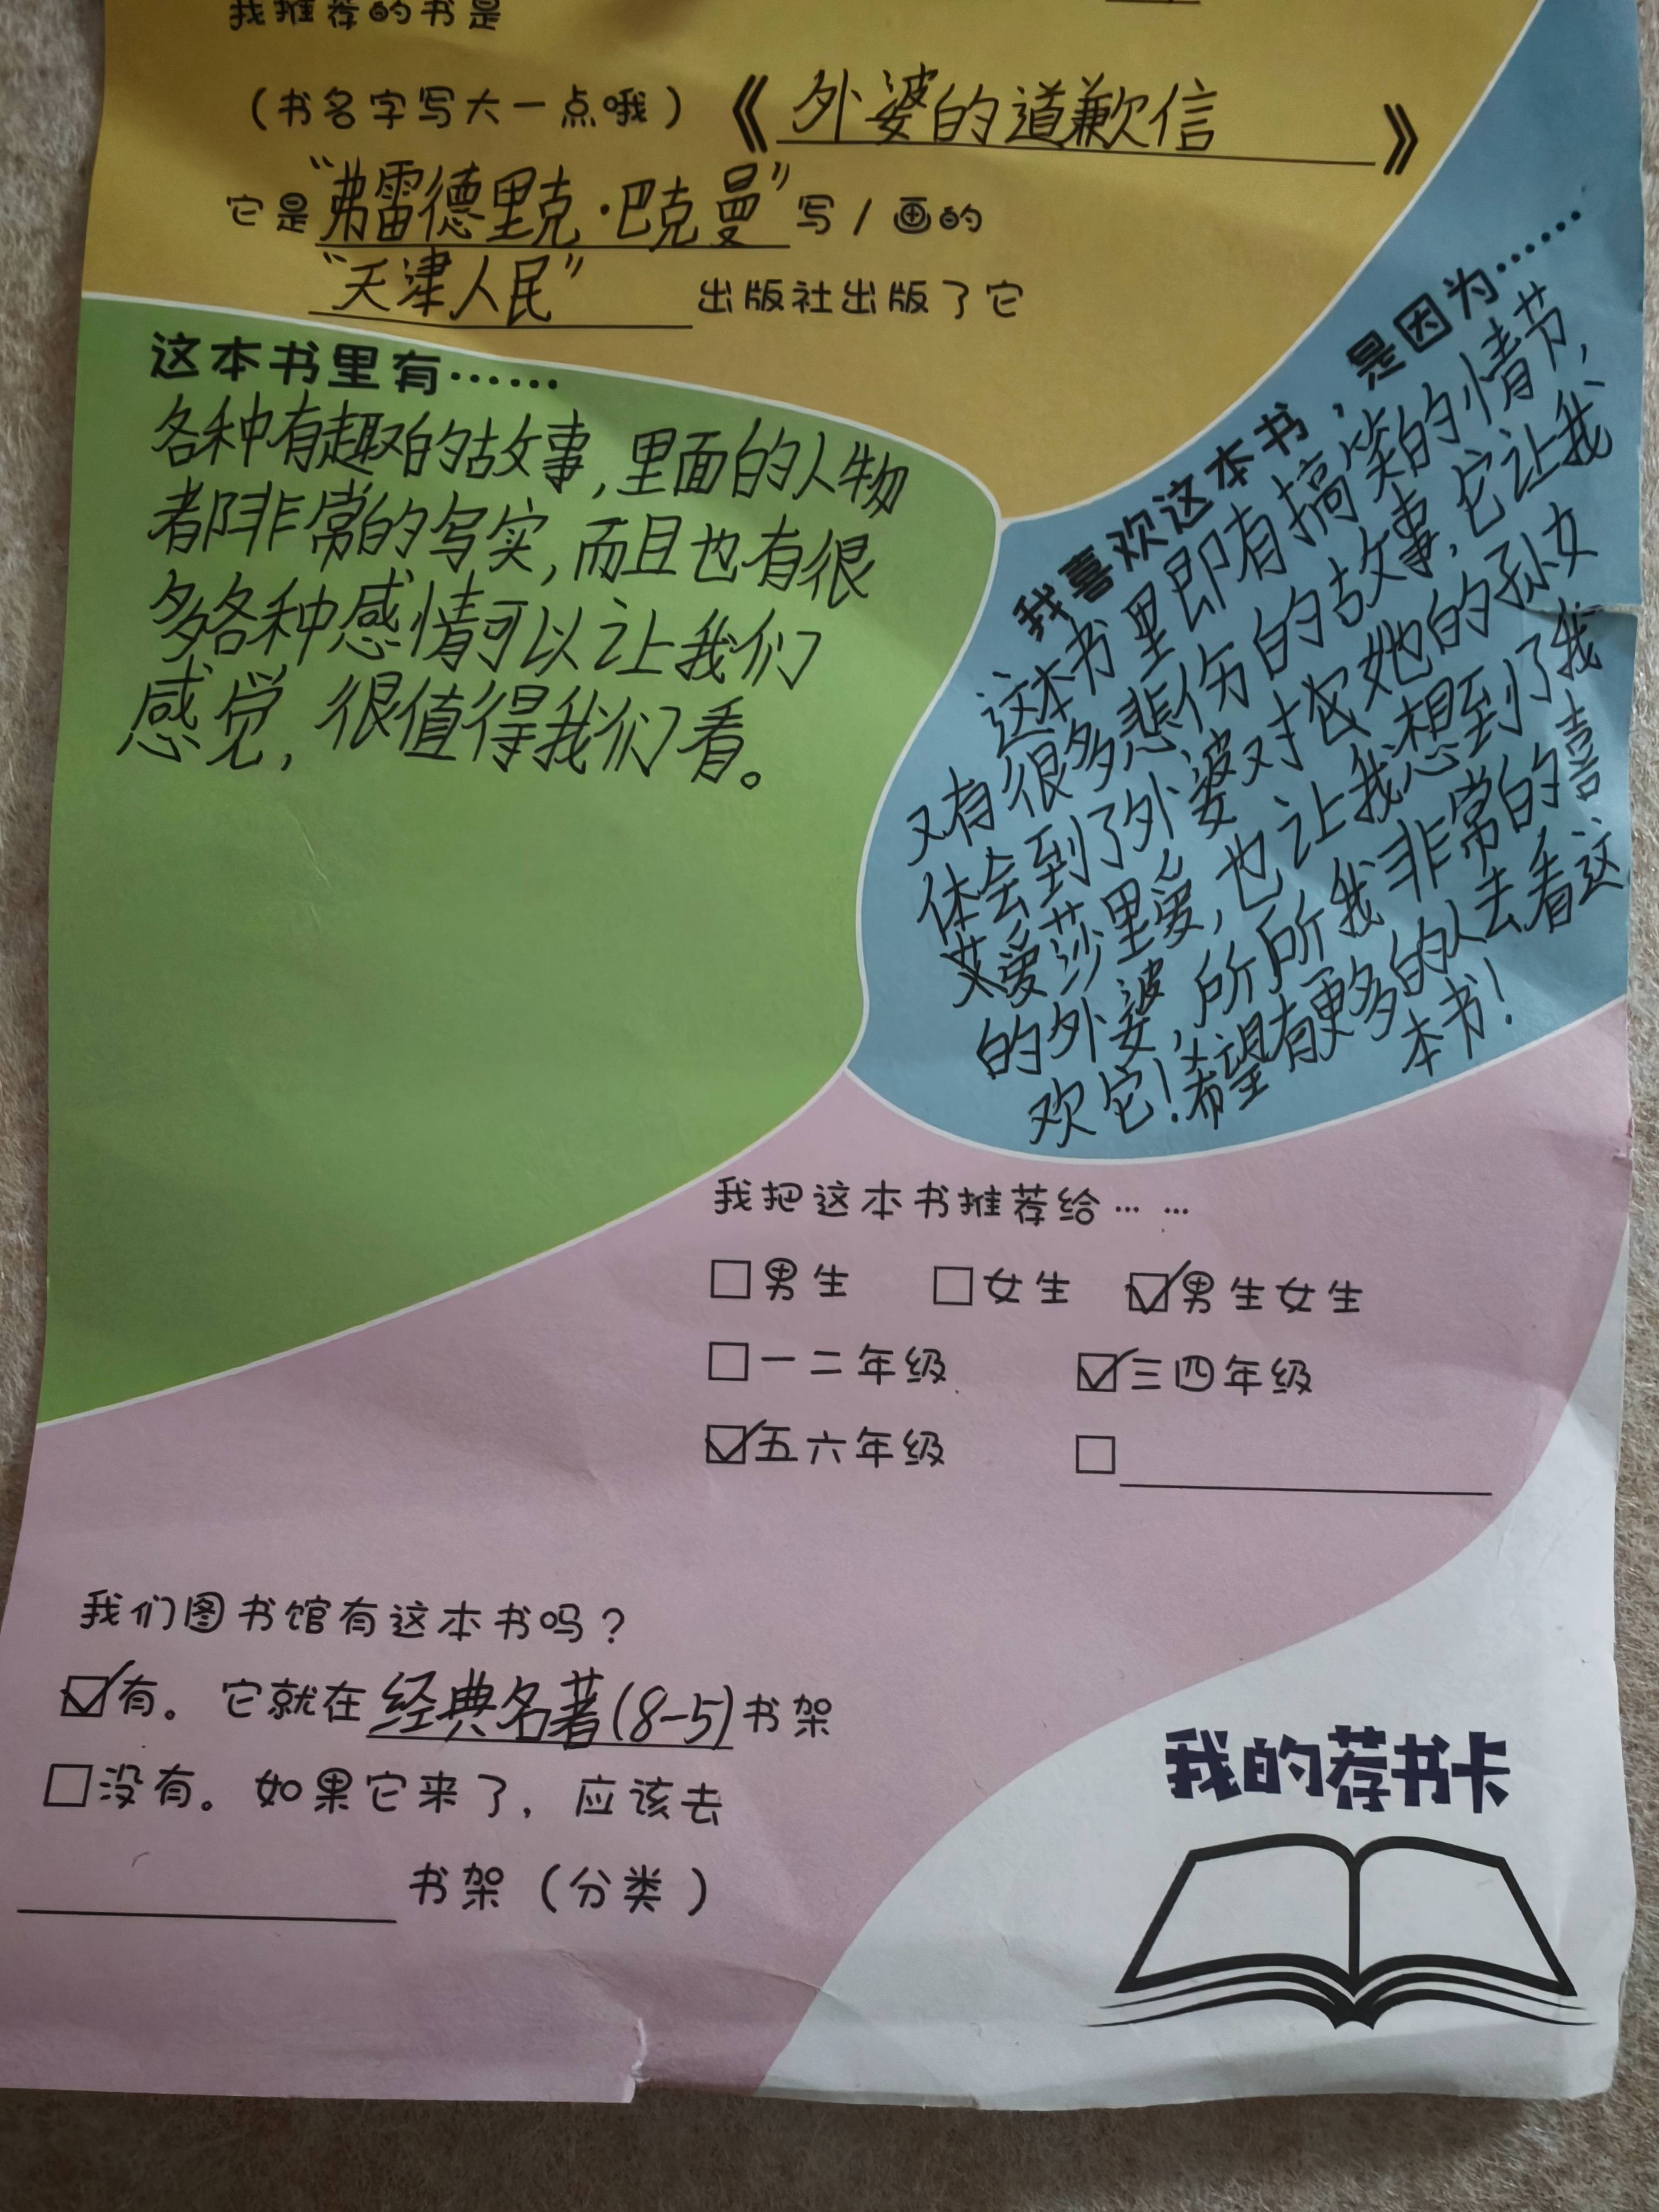 我推荐的书是
(书名字写大一点哦)《外婆的道歉信》
它是“弗雷德里克·巴克曼”写/画的
“天津人民”出版社出版了它
这本书里有……
各种有趣的故事,里面的人物
都非常的写实,而且也有很
多各种感情可以让我们
感觉,很值得我们看。
我喜欢这本书,是因为……
这本书里即有搞笑的情节,
又有很多悲伤的故事,它让我
体会到了外婆对她的孙女
艾莎里爱,也让我想到了我
的外婆,所所我非常的喜
欢它!希望有更多的人去看这
本书!
我把这本书推荐给… …
□男生 □女生 ☑男生女生
□一二年级 ☑三四年级
☑五六年级 □
我们图书馆有这本书吗?
☑有。它就在经典名著(8-5)书架
□没有。如果它来了,应该去
书架(分类)
我的荐书卡